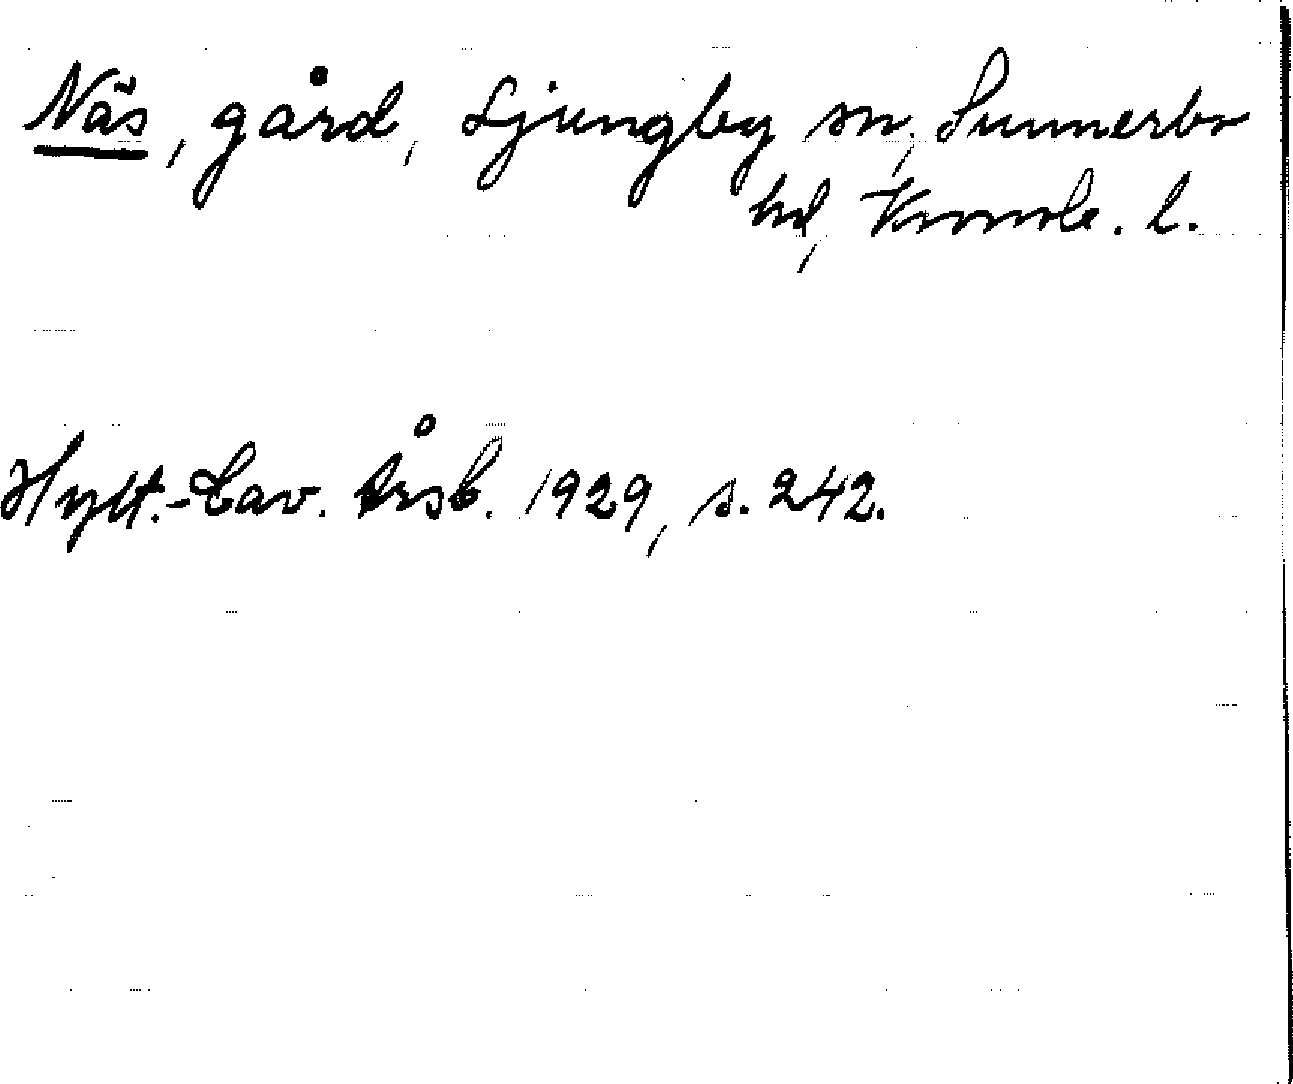 Näs, gård, Ljungby sn, Sunnerbo
hd, Kronob. l.
Hylt.-Cav. Årsb. 1929, s. 242.